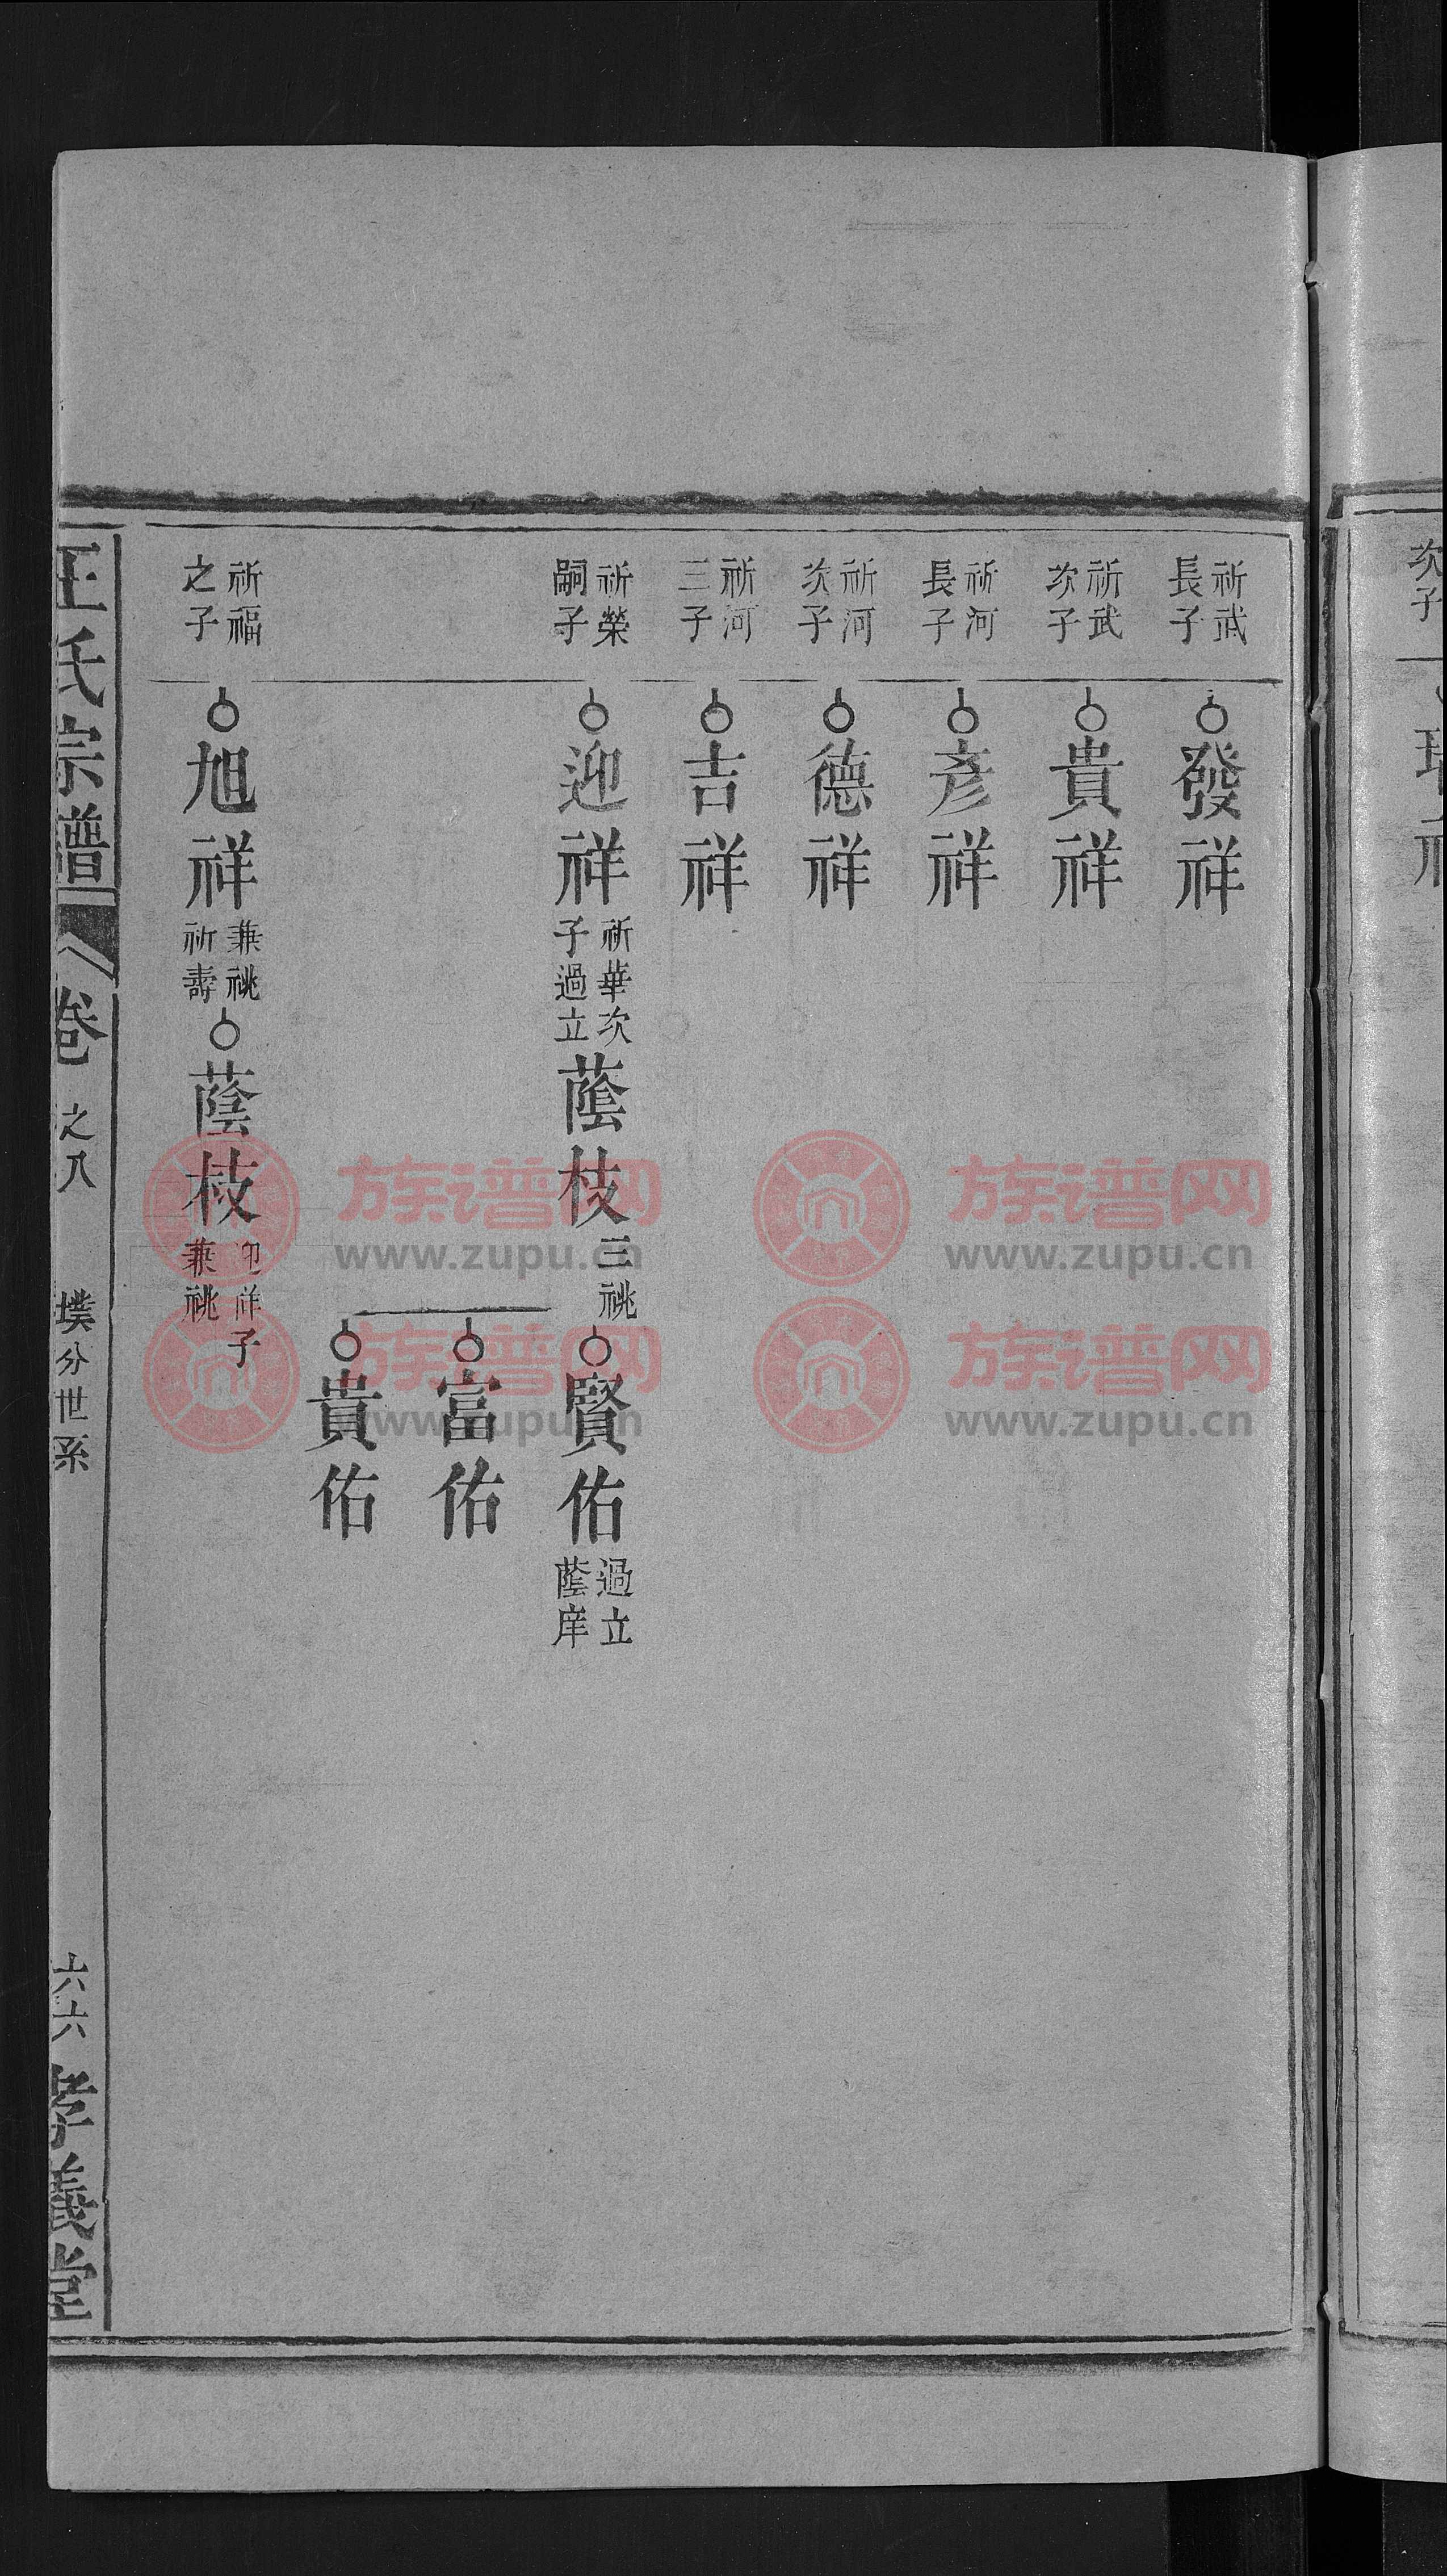 次子
祈武
長子
發祥
祈武
次子
貴祥
祈河
長子
彥祥
祈河
次子
德祥
祈河
三子
吉祥
祈榮
嗣子
迎祥
祈華次
子過立
蔭枝
三祧
賢佑
過立
蔭庠
富佑
貴佑
祈福
之子
旭祥
兼祧
祈壽
蔭枝
迎祥子
兼祧
王氏宗譜
卷之八
墣分世系
六六
孝義堂
族谱网
www.zupu.cn
族谱网
www.zupu.cn
族谱网
www.zupu.cn
族谱网
www.zupu.cn